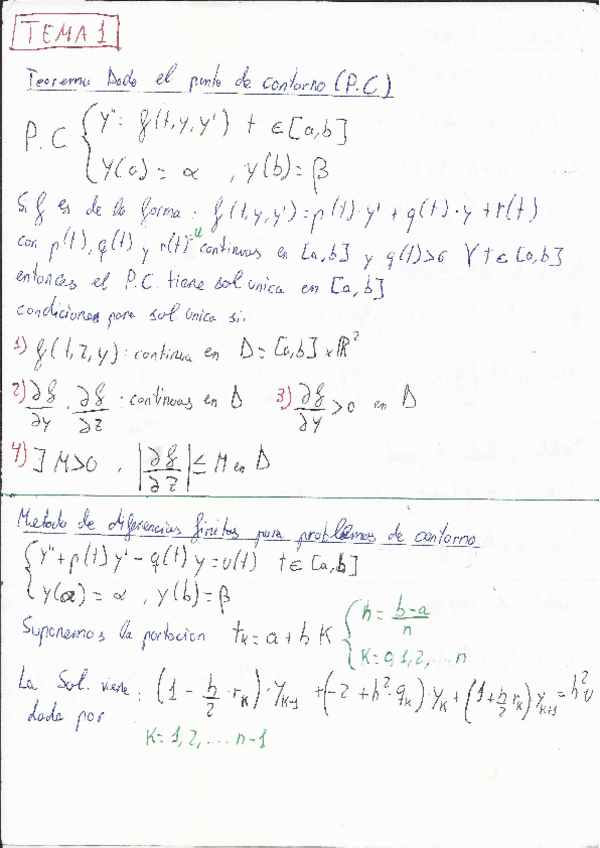 TEMA 1
Teorema Dado el punto de contorno (P.C)
P.C { y'' = f(t,y,y') t ∈ [a,b]
y(a) = α , y(b) = β
Si f es de la forma : f(t,y,y') = p(t)·y' + q(t)·y + r(t)
con p(t), q(t) y r(t) continuas en [a,b] y q(t)>0 ∀ t ∈ [a,b]
entonces el P.C. tiene sol unica en [a,b]
condiciones para sol unica si.
1) f(t,z,y) : continua en D = [a,b] x ℝ²
2) ∂f/∂y , ∂f/∂z : continuas en D 3) ∂f/∂y > 0 en D
4) ∃ M>0 , |∂f/∂z| ≤ M en D
Metodo de diferencias finitas para problemas de contorno
{ y'' + p(t) y' - q(t) y = u(t) t ∈ [a,b]
y(a) = α , y(b) = β
Suponemos la particion t_k = a + h K { h = (b-a)/n
K = 0,1,2,...n
La Sol. viene : (1 - h/2 · r_k)· y_k-1 + (-2 + h² · q_k)· y_k + (1 + h/2 r_k) y_k+1 = h² u
dada por
K = 1,2,... n-1